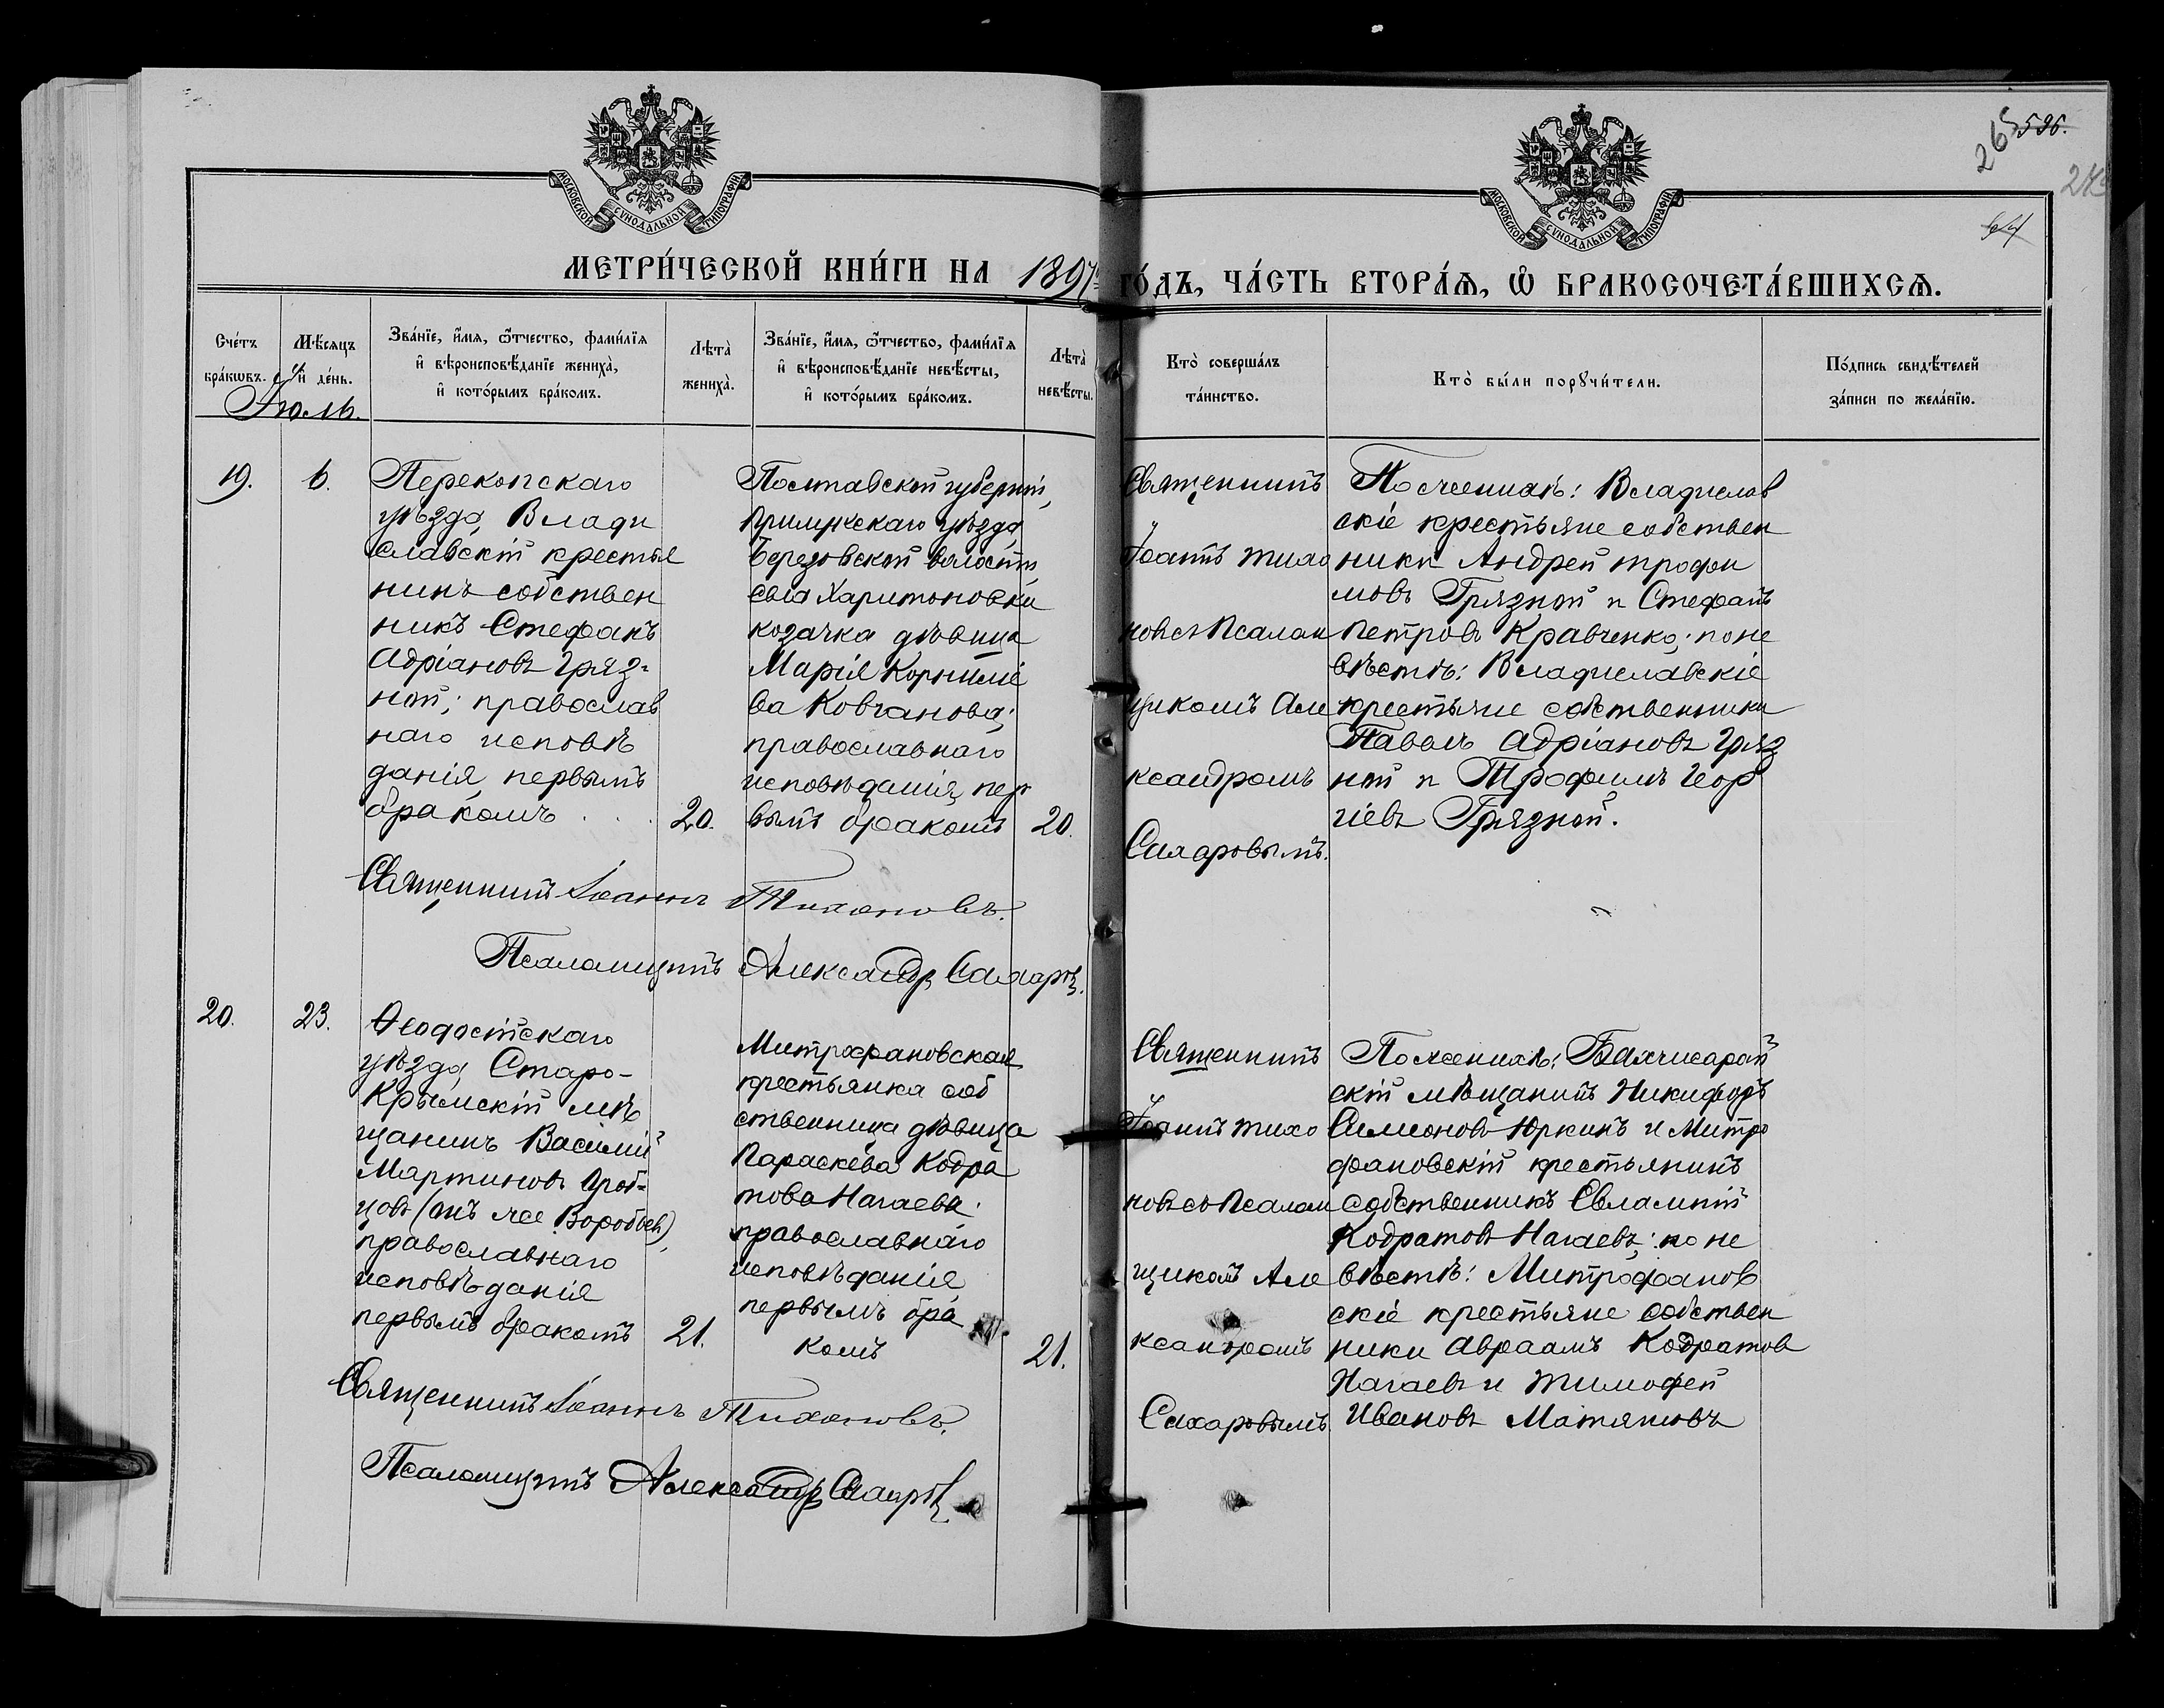 265 596.
273
МОСКОВСКОЙ СѴНОДАЛЬНОЙ ТИПОГРАФІИ
МОСКОВСКОЙ СѴНОДАЛЬНОЙ ТИПОГРАФІИ
МЕТРИ́ЧЕСКОЙ КНИ́ГИ НА 1897 ГО́ДЪ, ЧА́СТЬ ВТОРА́Ѧ, Ѡ҆ БРАКОСОЧЕТА́ВШИХСѦ.
Сче́тъ бра́кѡвъ.
Мѣ́сяцъ и҆ де́нь.
Зва́нїе, и҆́мѧ, ѻ҆́тчество, фами́лїѧ
и҆ вѣроисповѣ́данїе жениха̀,
и҆ кото́рымъ бра́комъ.
Лѣта̀ жениха̀.
Зва́нїе, и҆́мѧ, ѻ҆́тчество, фами́лїѧ
и҆ вѣроисповѣ́данїе невѣ́сты,
и҆ кото́рымъ бра́комъ.
Лѣта̀ невѣ́сты.
Кто̀ соверша́лъ та́инство.
Кто̀ бы́ли порꙋчи́тели.
По́дпись свидѣ́телей за́писи по жела́нїю.
Іюль.
19.
6.
Перекопскаго
уѣзда, Влади
славскій крестья
нинъ собствен
никъ Стефанъ
Адріановъ Гряз-
ной; православ
наго исповѣ
данія, первымъ
бракомъ . . .
20.
Полтавской губерніи,
Прилукскаго уѣзда,
Березовской волости,
села Харитоновки
козачка дѣвица
Марія Корниліе
ва Ковчанова;
православнаго
исповѣданія, пер
вымъ бракомъ
20.
Священникъ
Іоаннъ Тихо
новъ съ Псалом
щикомъ Але
ксандромъ
Сахаровымъ.
По женихѣ: Владислав
скіе крестьяне собствен
ники Андрей Трофи
мовъ Грязной и Стефанъ
Петровъ Кравченко; по не
вѣстѣ: Владиславскіе
крестьяне собственники
Павелъ Адріановъ Гряз
ной и Трофимъ Геор
гіевъ Грязной.
Священникъ Іоаннъ Тихоновъ.
Псаломщикъ Александръ Сахаровъ.
20.
23.
Ѳеодосійскаго
уѣзда, Старо-
Крымскій мѣ
щанинъ Василій
Мартиновъ
(онъ же Воробьевъ),
православнаго
исповѣданія
первымъ бракомъ
21.
Митрофановская
крестьянка соб
ственница дѣвица
Параскева Кодра
това Нагаева.
православнаго
исповѣданія,
первымъ бра
комъ
21.
Священникъ
Іоаннъ Тихо
новъ съ Псалом
щикомъ Але
ксандромъ
Сахаровымъ.
По женихѣ: Бахчисарай
скій мѣщанинъ Никифоръ
Симеоновъ Юркинъ и Митро
фановскій крестьянинъ
собственникъ Евлампій
Кодратовъ Нагаевъ; по не
вѣстѣ: Митрофанов
скіе крестьяне собствен
ники Авраамъ Кодратов
Нагаевъ и Тимофей
Ивановъ Матяшовъ
Священникъ Іоаннъ Тихоновъ.
Псаломщикъ Александръ Сахаровъ.